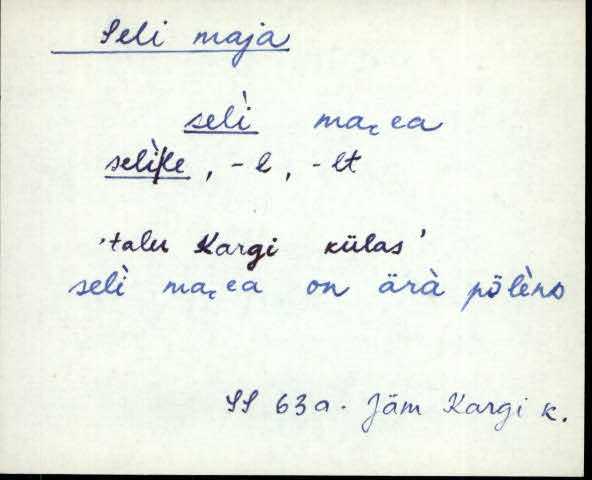 Seli maja
selì maꞔea
selìlle, -l, -lt
'talu Kargi külas'
selì maꞔea on ärà põlèno
SS 63a. Jäm Kargi k.